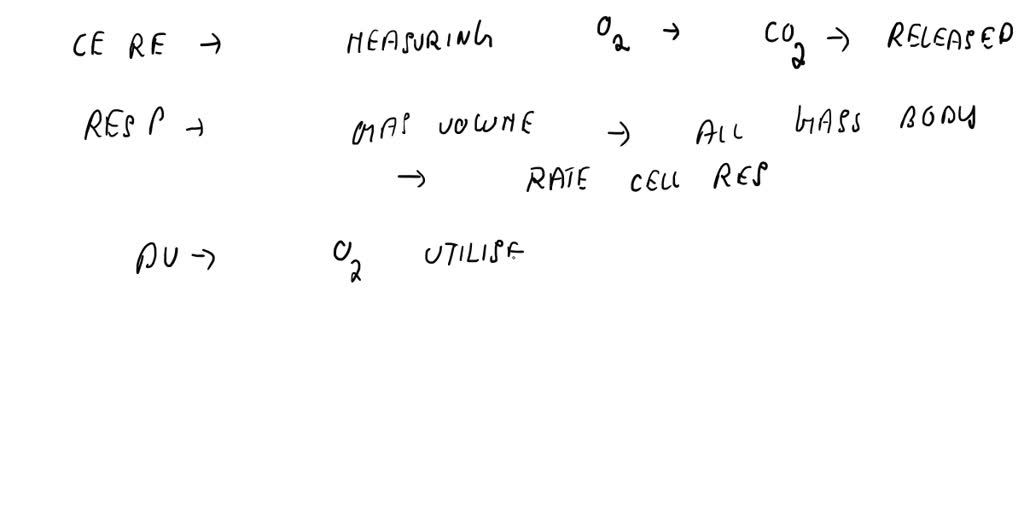 CE RE → MEASURING O2 → CO2 → RELEASED
RESP → GAS VOLUME → ALL MASS BODY
→ RATE CELL RES
DV → O2 UTILISE